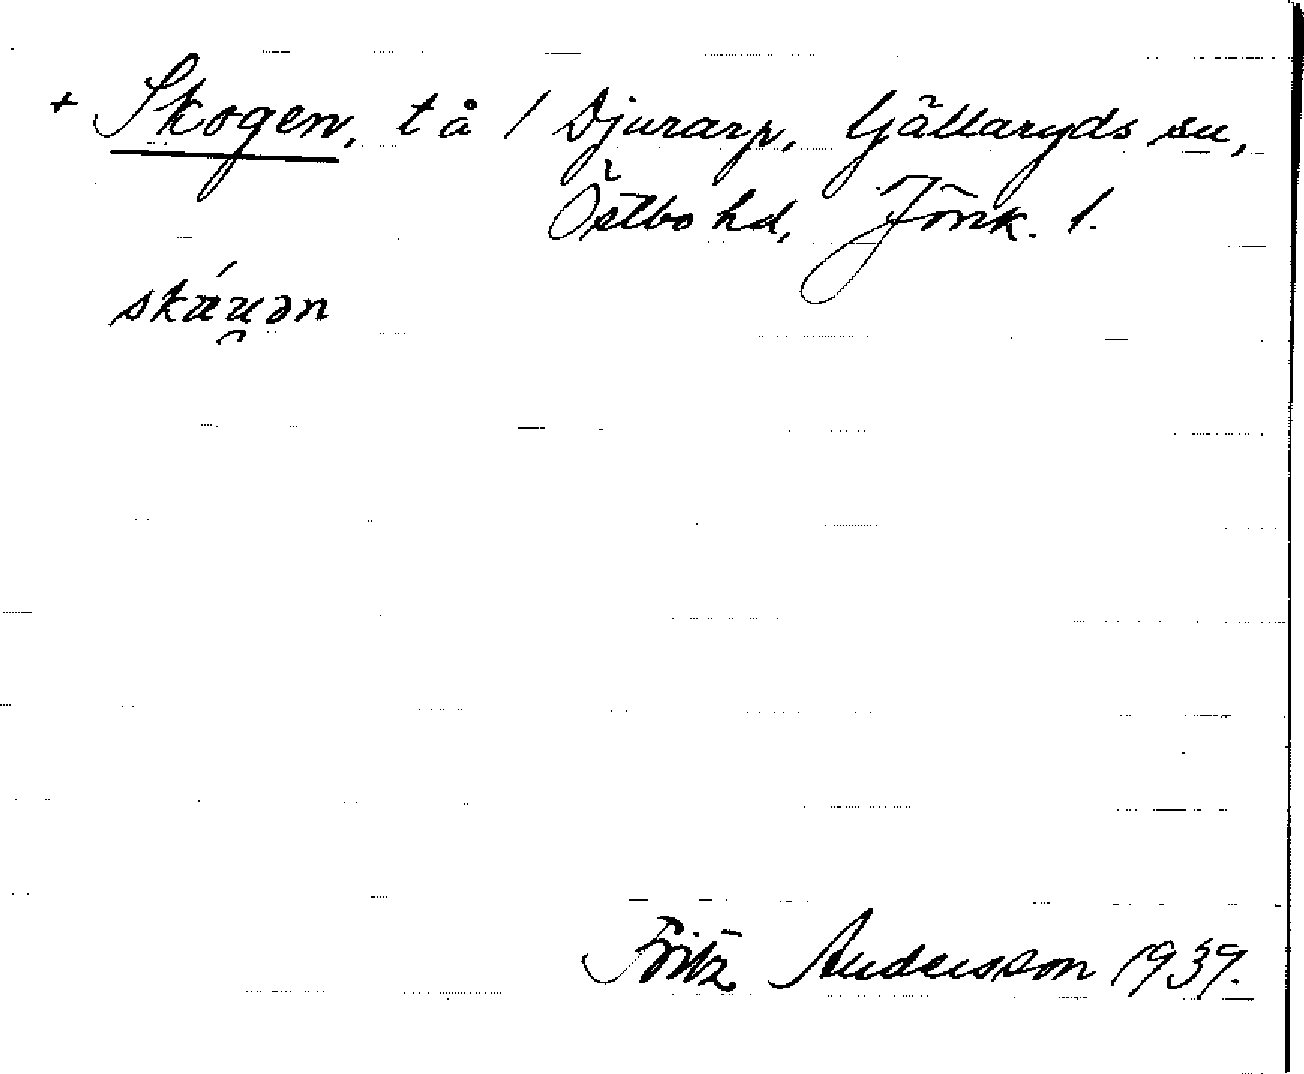 + Skogen, t å / Djurarp, Gällaryds sn,
Östbo hd, Jönk. l.
Fritz Andersson 1939.